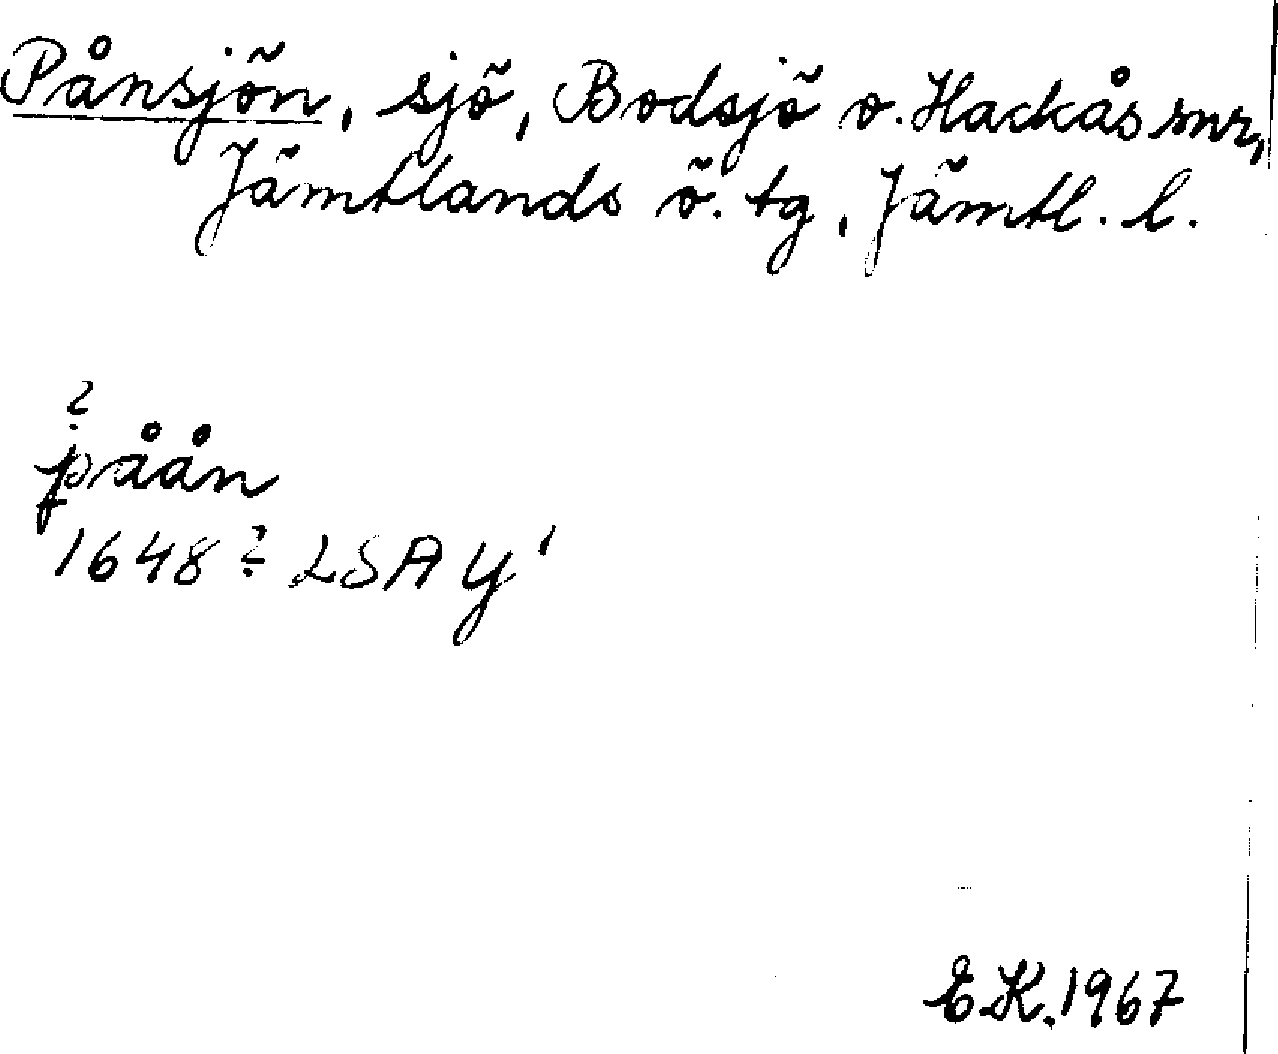 Pånsjön, sjö, Bodsjö o. Hackås snr,
Jämtlands ö. tg, Jämtl. l.
?
påån
1648? LSA Y'
E.K. 1967